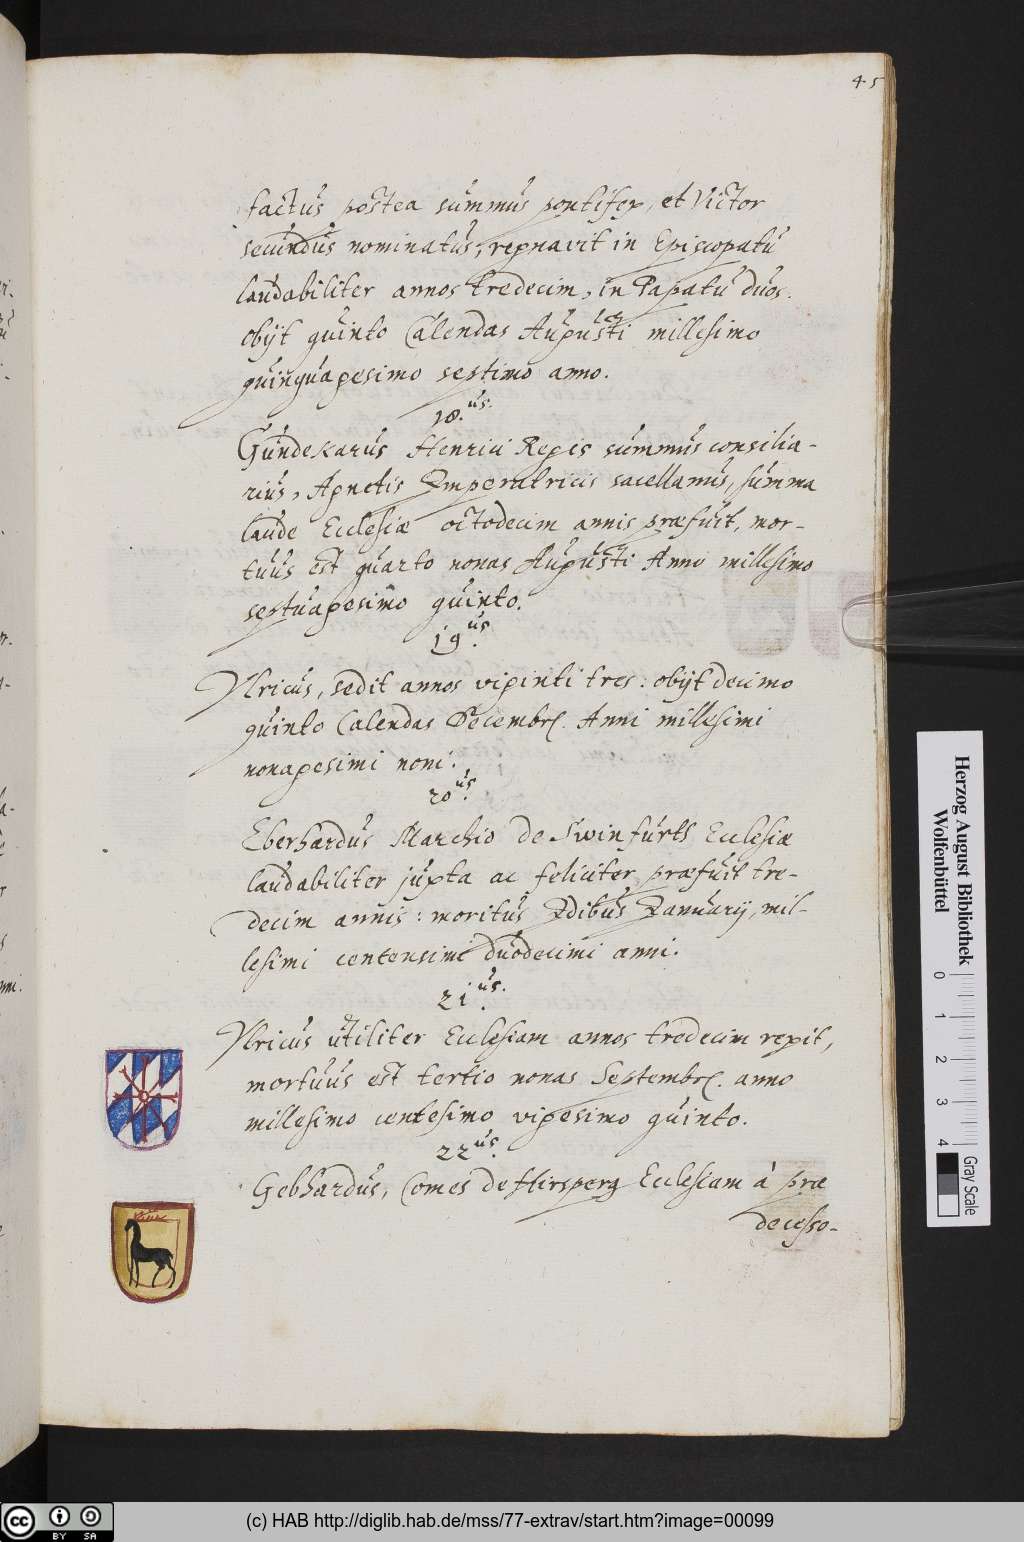 45
factus postea summus pontifex, et Victor
secundus nominatus, regnavit in Episcopatu
laudabiliter annos tredecim, in Papatu duos.
obijt quinto Calendas Augusti millesimo
quinquagesimo septimo anno.
18.us.
Gundekarus Henrici Regis summus consilia-
rius, Agnetis Imperatricis sacellanus, summa
laude Ecclesiæ octodecim annis præfuit, mor-
tuus est quarto nonas Augusti Anno millesimo
septuagesimo quinto.
19us.
Ulricus, sedit annos viginti tres: obijt decimo
quinto Calendas Decembr. Anni millesimi
nonagesimi noni.
20us.
Eberhardus Marchio de Swinfurth Ecclesiæ
laudabiliter juxta ac feliciter præfuit tre-
decim annis: moritus Idibus Ianuarij, mil-
lesimi centensimi duodecimi anni.
21us.
Ulricus utiliter Ecclesiam annos tredecim regit,
mortuus est tertio nonas Septembr. anno
millesimo centesimo vigesimo quinto.
22us.
Gebhardus, Comes de Hirsperg Ecclesiam à præ
decesso-
Herzog August Bibliothek
Wolfenbüttel
0 1 2 3 4
Gray Scale
cc BY SA
(c) HAB http://diglib.hab.de/mss/77-extrav/start.htm?image=00099